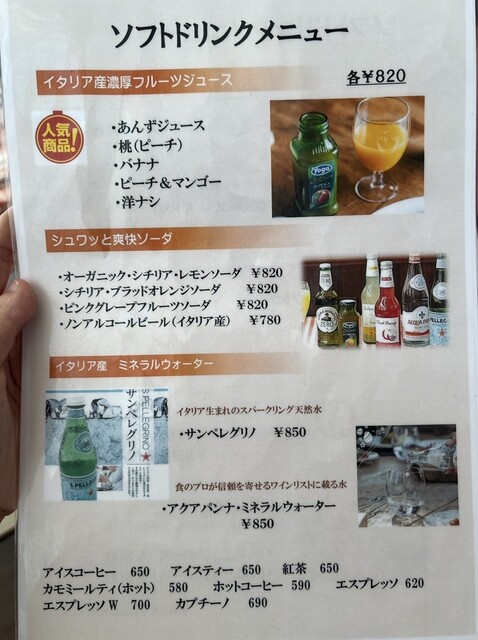 ソフトドリンクメニュー
イタリア産濃厚フルーツジュース 各￥820
人気商品!
・あんずジュース
・桃(ピーチ)
・バナナ
・ピーチ＆マンゴー
・洋ナシ
Yoga
シュワッと爽快ソーダ
・オーガニック・シチリア・レモンソーダ ￥820
・シチリア・ブラッドオレンジソーダ ￥820
・ピンクグレープフルーツソーダ ￥820
・ノンアルコールビール(イタリア産) ￥780
ZERO
ACQUA PANNA
イタリア産 ミネラルウォーター
S.PELLEGRINO
サンペレグリノ
S.PELLEGRINO
イタリア生まれのスパークリング天然水
・サンペレグリノ ￥850
食のプロが信頼を寄せるワインリストに載る水
・アクアパンナ・ミネラルウォーター
￥850
アイスコーヒー 650 アイスティー 650 紅茶 650
カモミールティ(ホット) 580 ホットコーヒー 590 エスプレッソ 620
エスプレッソW 700 カプチーノ 690